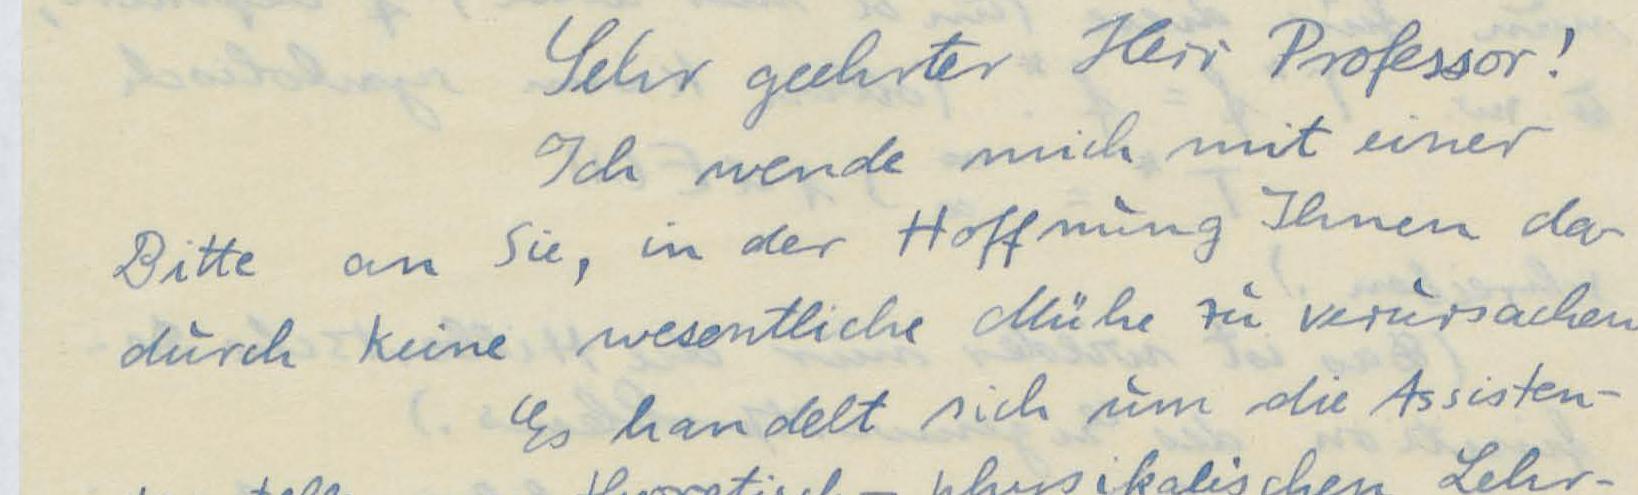 Sehr geehrter Herr Professor!
Ich wende mich mit einer
Bitte an Sie, in der Hoffnung Ihnen da-
durch keine wesentliche Mühe zu verursachen
Es handelt sich um die Assisten-
theoretisch - physikalischen Lehr-